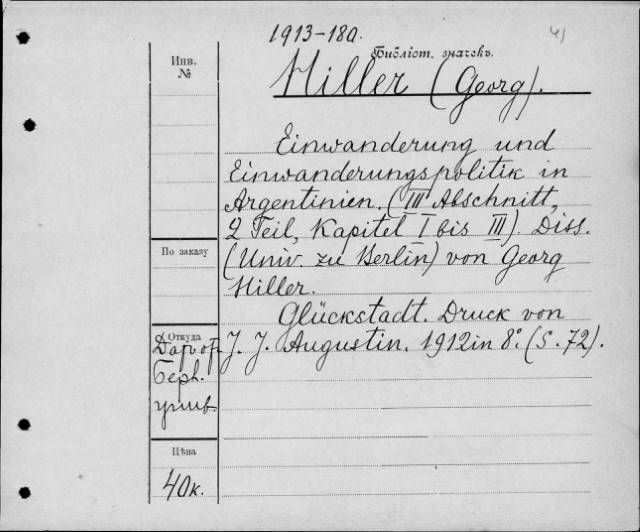 1913-180.
Библіот. значекъ.
Инв.
№
Hiller (Georg).
Einwanderung und
Einwanderungspolitik in
Argentinien. (III Abschnitt,
2 Teil, Kapitel I bis III). Diss.
По заказу
(Univ. zu Berlin) von Georg
Hiller.
Glückstadt. Druck von
Откуда
J. J. Augustin. 1912 in 8º. (S. 72).
Берл.
унив.
Цѣна
40к.